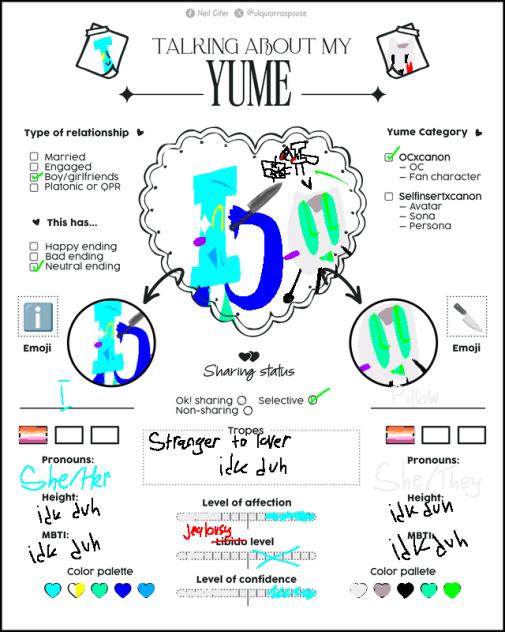 Neil Cifer @ulquiorraspouse
TALKING ABOUT MY
YUME
Type of relationship
Married
Engaged
Boy/girlfriends
Platonic or QPR
This has...
Happy ending
Bad ending
Neutral ending
Yume Category
OCxcanon
— OC
— Fan character
Selfinsertxcanon
— Avatar
— Sona
— Persona
Emoji
Emoji
Sharing status
Ok! sharing Selective
Non-sharing
I
Pillow
Tropes
Stranger to lover
idk duh
Pronouns:
She/Her
Height:
idk duh
MBTI:
idk duh
Color palette
Level of affection
jealousy
Libido level
Level of confidence
Pronouns:
She/They
Height:
idk duh
MBTI:
idk duh
Color pallete